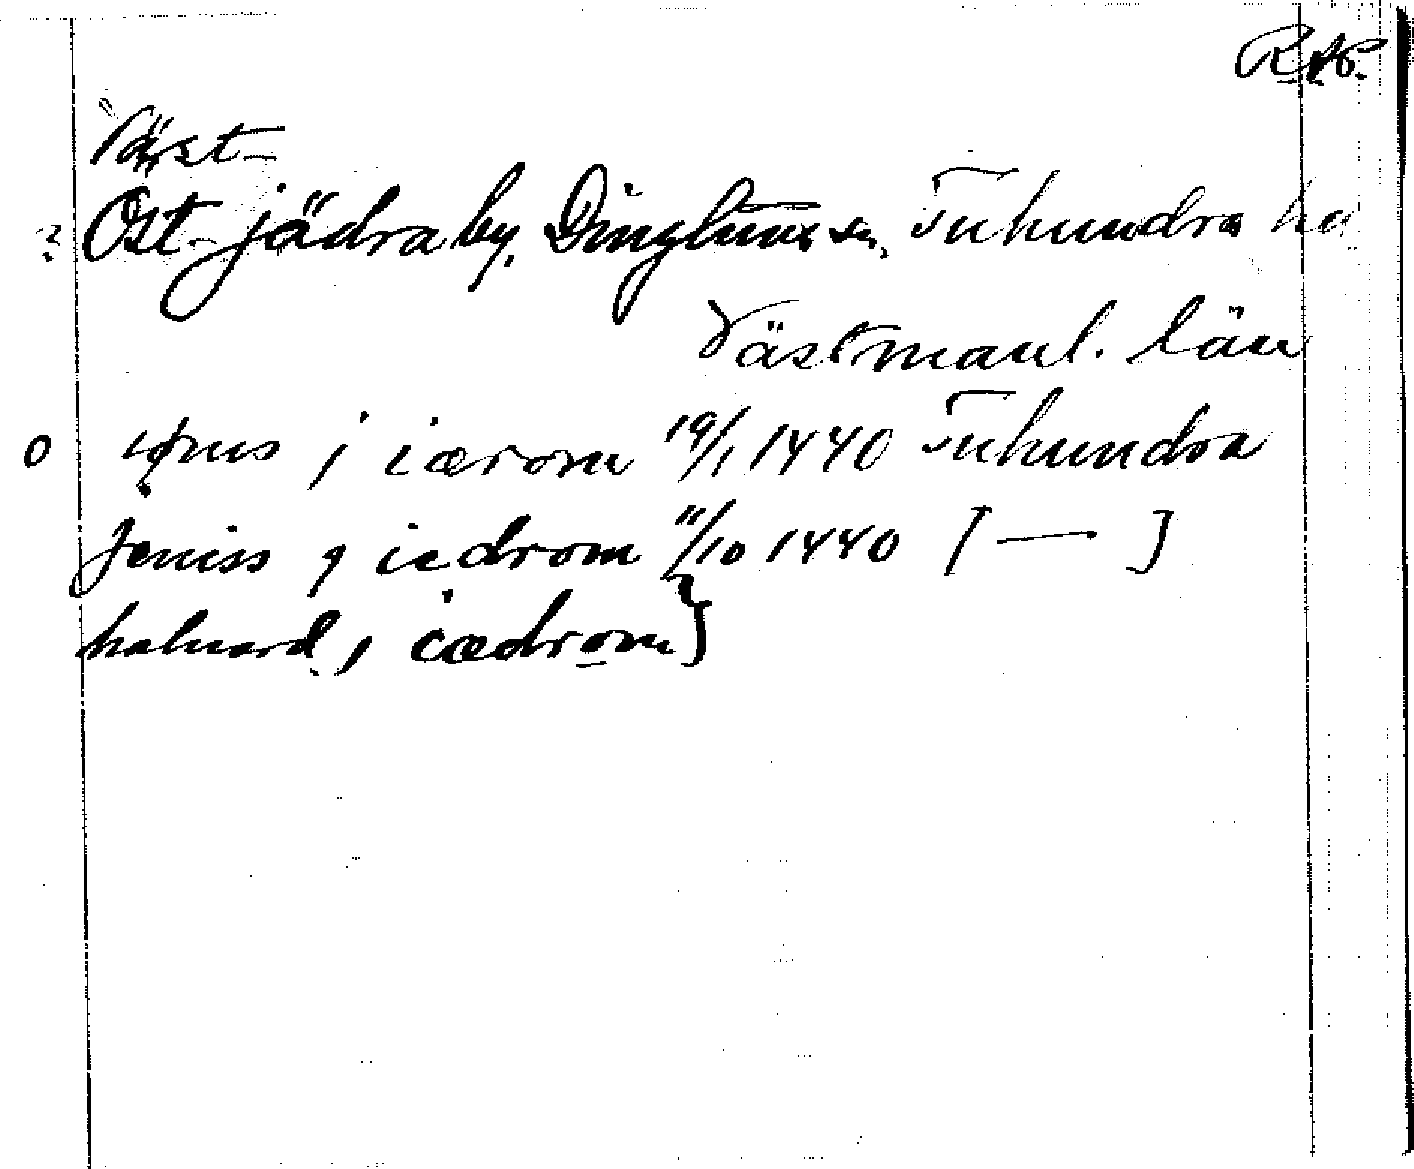 RAP.
Väst-
? Öst-jädra by, Dingtuna sn, Tuhundra hd
Västmanl. län
o i iærom 19/1 1440 Tuhundra
Jeniss i iedrom 11/10 1440 [ — ]
haluard i iædrom]